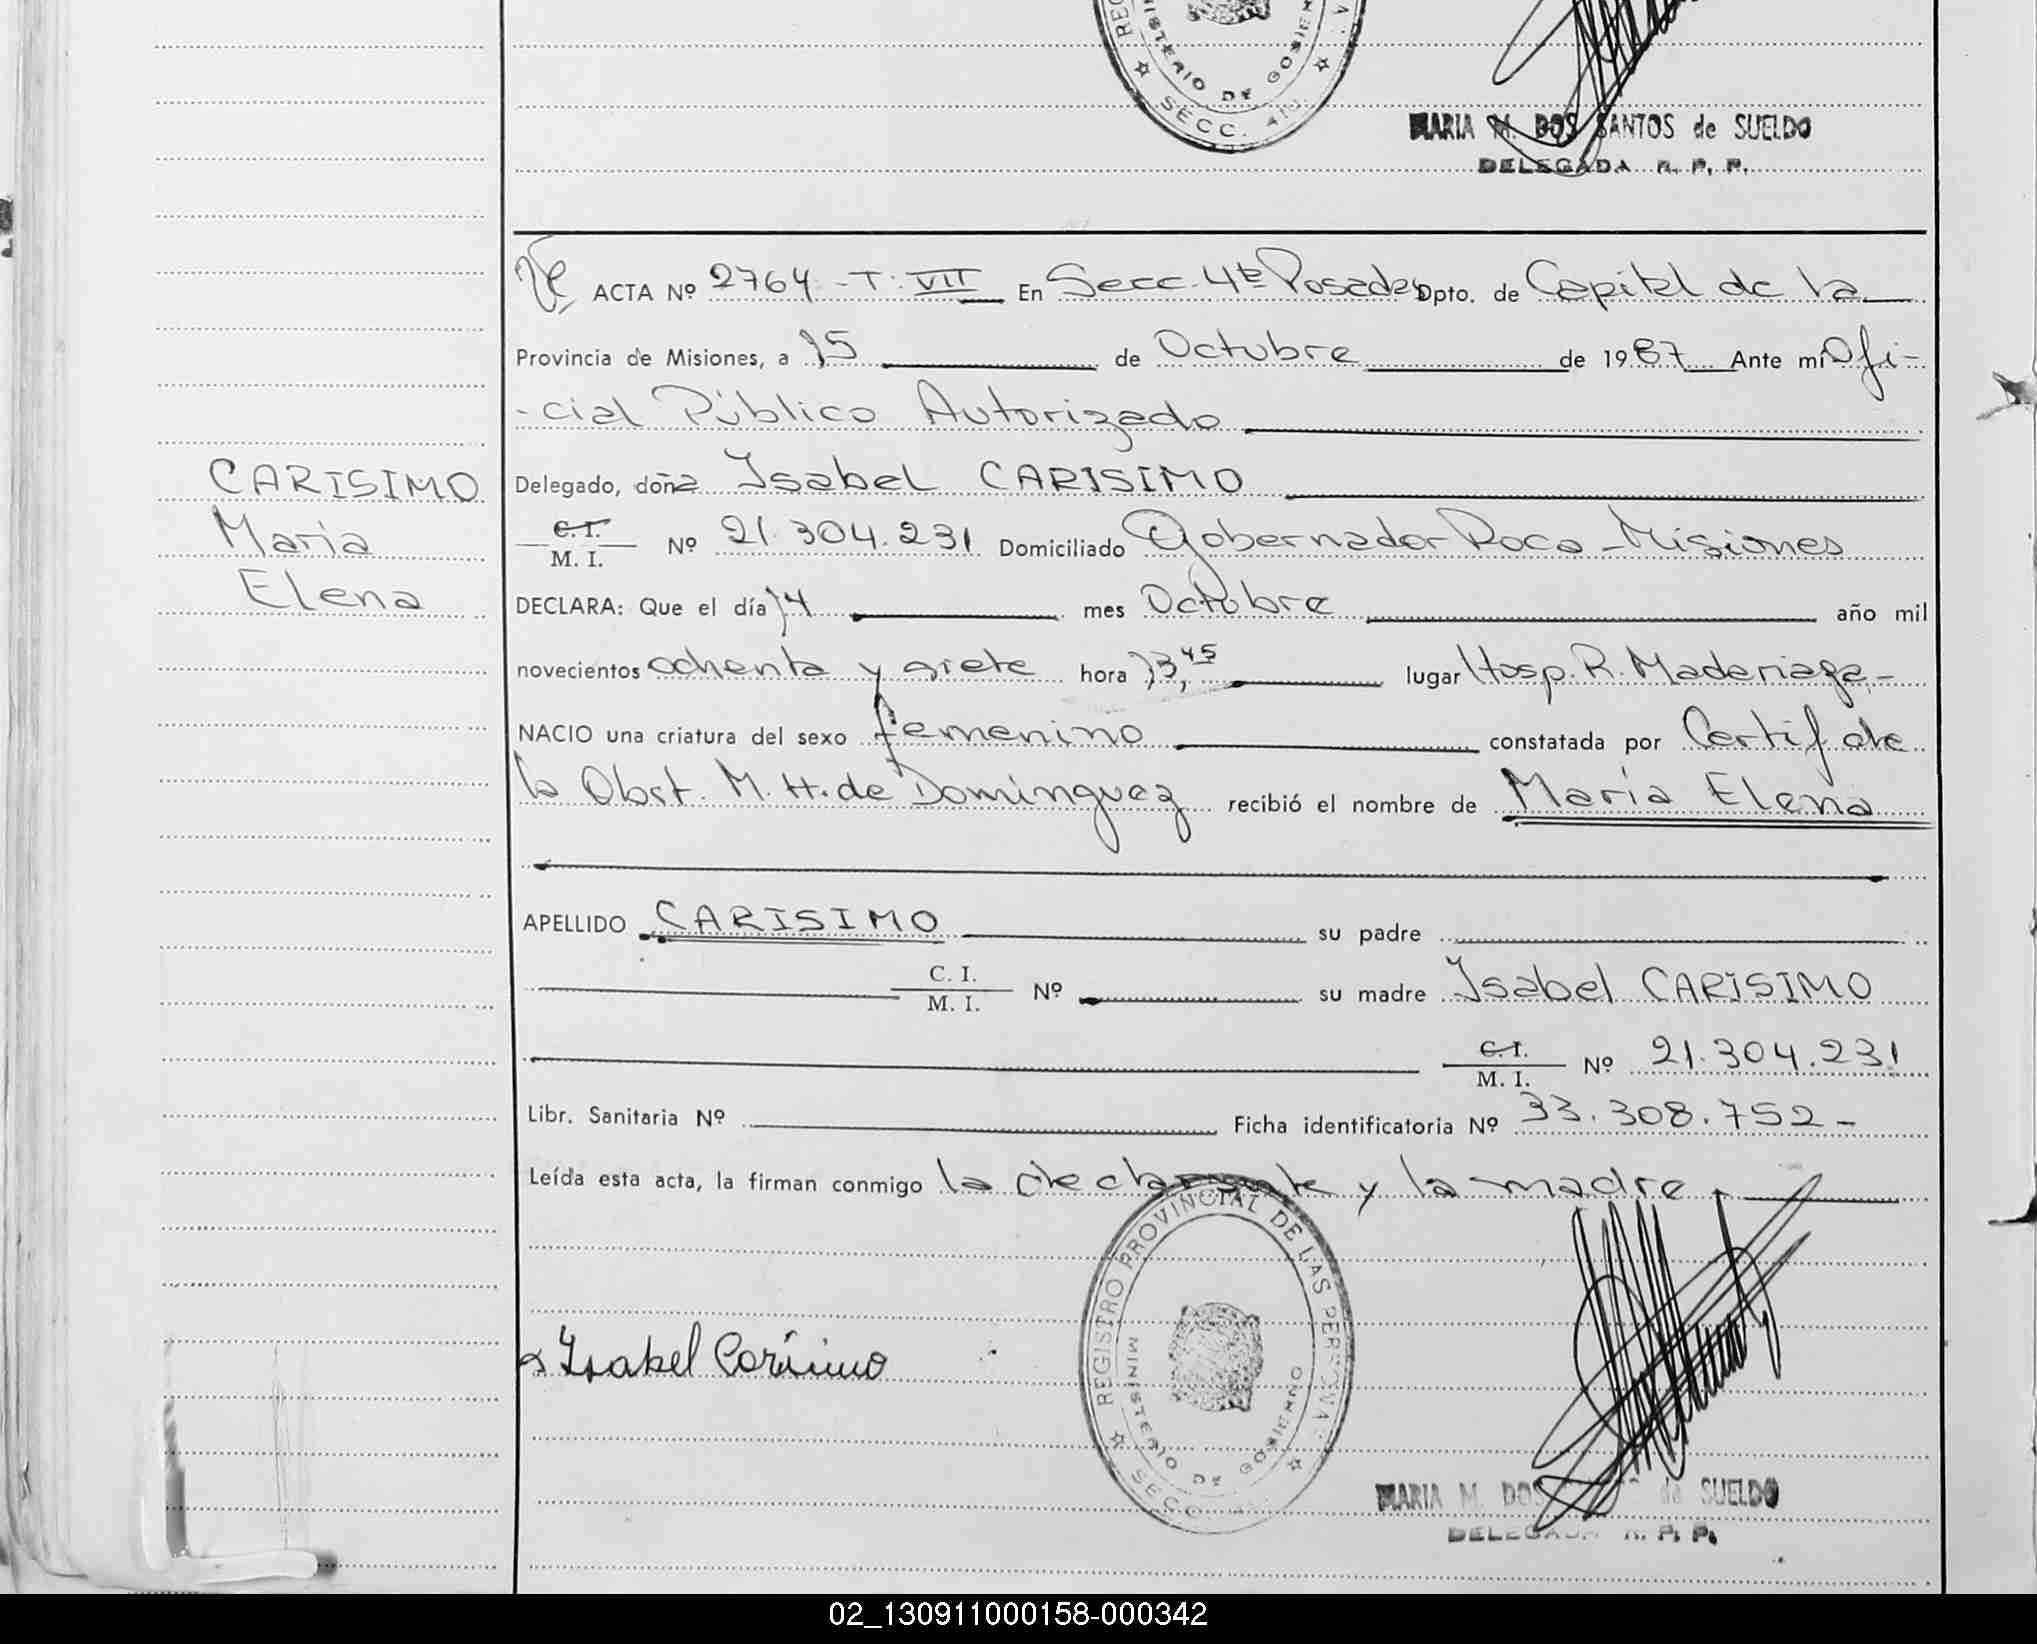 REG
MINISTERIO DE GOBIERNO
SECC. 4TA.
MARIA M. DOS SANTOS de SUELDO
DELEGADA R. P. P.
ACTA Nº 2764 - T. VII En Secc. 4ta Posadas Dpto. de Capital de la
Provincia de Misiones, a 15 de Octubre de 1987 Ante mí Ofi-
-cial Público Autorizado
CARISIMO
Delegado, doña Isabel CARISIMO
Maria
C. I. / M. I. Nº 21.304.231 Domiciliado Gobernador Roca - Misiones
Elena
DECLARA: Que el día 14 mes Octubre año mil
novecientos ochenta y siete hora 13,45 lugar Hosp. R. Madariaga.-
NACIO una criatura del sexo femenino constatada por Certif de
la Obst. M. H. de Dominguez recibió el nombre de María Elena
APELLIDO CARISIMO su padre
C. I. / M. I. Nº su madre Isabel CARISIMO
C. I. / M. I. Nº 21.304.231
Libr. Sanitaria Nº Ficha identificatoria Nº 33.308.752 -
Leída esta acta, la firman conmigo la declarante y la madre.
REGISTRO PROVINCIAL DE LAS PERSONAS
MINISTERIO DE GOBIERNO
SECC.
Isabel Carisimo
MARIA M. DOS de SUELDO
DELEGADA R. P. P.
02_130911000158-000342